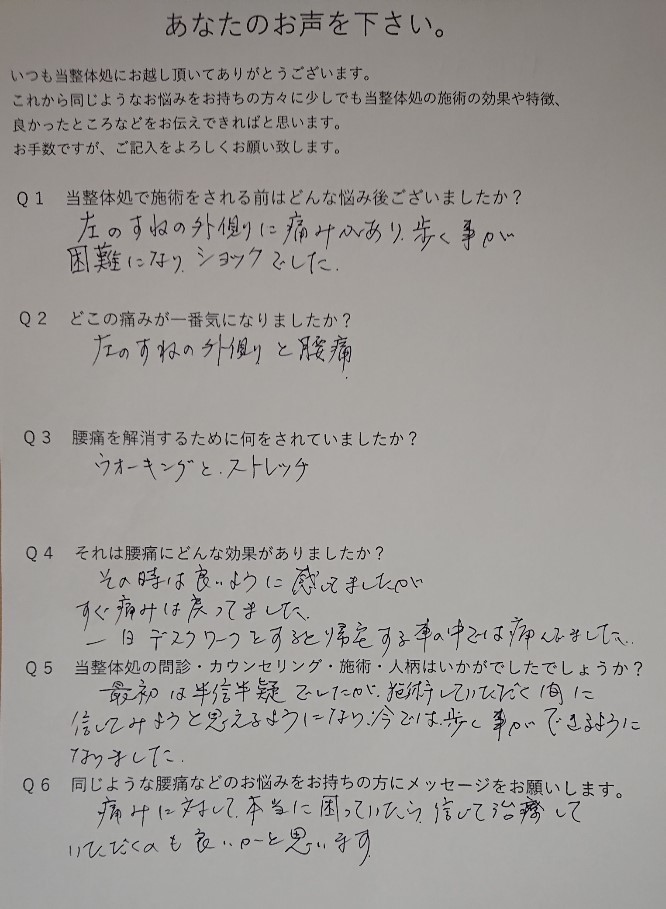 あなたのお声を下さい。
いつも当整体処にお越し頂いてありがとうございます。
これから同じようなお悩みをお持ちの方々に少しでも当整体処の施術の効果や特徴、
良かったところなどをお伝えできればと思います。
お手数ですが、ご記入をよろしくお願い致します。
Q1 当整体処で施術をされる前はどんな悩み後ございましたか？
左のすねの外側りに痛みがあり、歩く事が
困難になり、ショックでした。
Q2 どこの痛みが一番気になりましたか？
左のすねの外側りと腰痛
Q3 腰痛を解消するために何をされていましたか？
ウオーキングと、ストレッチ
Q4 それは腰痛にどんな効果がありましたか？
その時は良いように感じてましたが
すぐ痛みは戻ってました。
一日デスクワークをすると帰宅する車の中では痛んでました。
Q5 当整体処の問診・カウンセリング・施術・人柄はいかがでしたでしょうか？
最初は半信半疑でしたが、施術していただく内に
信じてみようと思えるようになり、今では、歩く事ができるように
なりました。
Q6 同じような腰痛などのお悩みをお持ちの方にメッセージをお願いします。
痛みに対して、本当に困っていたら、信じて治療して
いただくのも良いかーと思います。